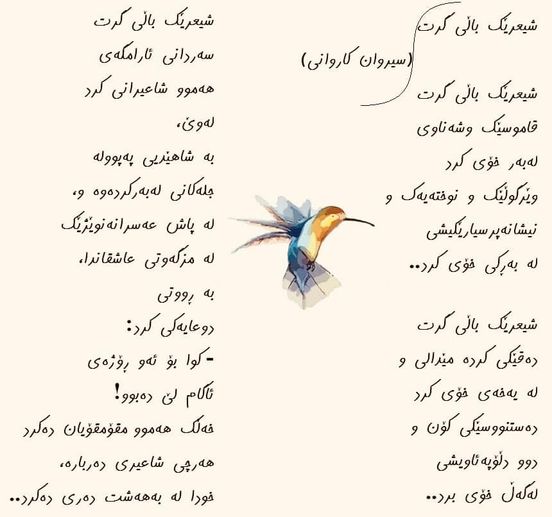 شیعرێک باڵی گرت
(سیروان کاروانی)
شیعرێک باڵی گرت
قاموسێک وشەناوی
لەبەر خۆی کرد
وێرگولێک و نوختەیەک و
نیشانەپرسیارێکیشی
لە بەرکی خۆی کرد..
شیعرێک باڵی گرت
دەقێکی کردە مێرالی و
لە یەخەی خۆی کرد
دەستنووسێکی کۆن و
دوو دڵۆپەئاویشی
لەگەڵ خۆی برد..
شیعرێک باڵی گرت
سەردانی ئارامگەی
هەموو شاعیرانی کرد
لەوێ،
بە شاهێریی پەپوولە
جلەکانی لەبەرکردەوە و،
لە پاش عەسرانەنوێژێک
لە مزگەوتی عاشقاندا،
بە ڕووتی
دوعایەکی کرد:
- کوا بۆ ئەو ڕۆژەی
ئاگام لێ دەبوو!
خەڵک هەموو مقۆمقۆیان دەکرد
هەرچی شاعیری دەربارە،
خودا لە بەهەشت دەری دەکرد..